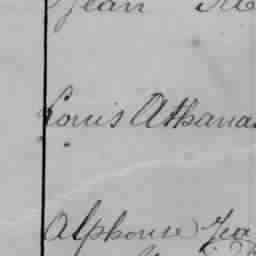 Jean
Louis Athana
Alphonse Jea